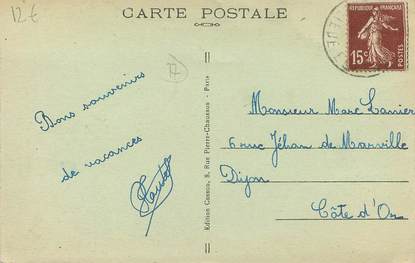 12 €
CARTE POSTALE
REPUBLIQUE FRANÇAISE
15c
POSTES
Bons souvenirs
de vacances
Edition Cosson, 3, Rue Pierre-Chausson - Paris
Monsieur Marc Lanier
6 rue Jéhan de Marville
Dijon
Côte d'Or